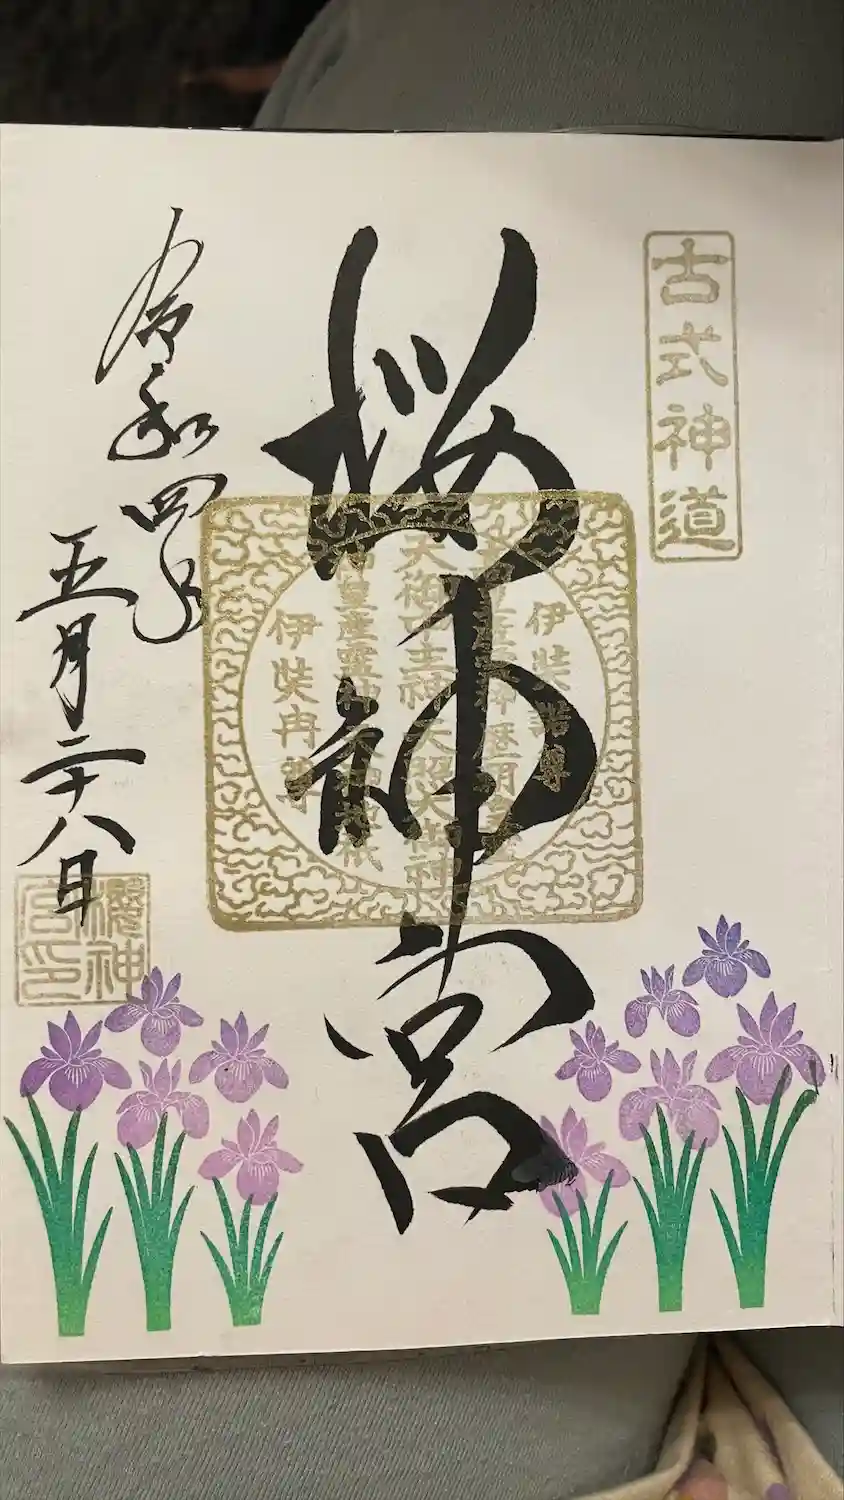 古式神道
桜神宮
伊弉諾尊
天御中主神天照大御神
伊弉冉尊
令和四年
五月二十八日
櫻神
宮印